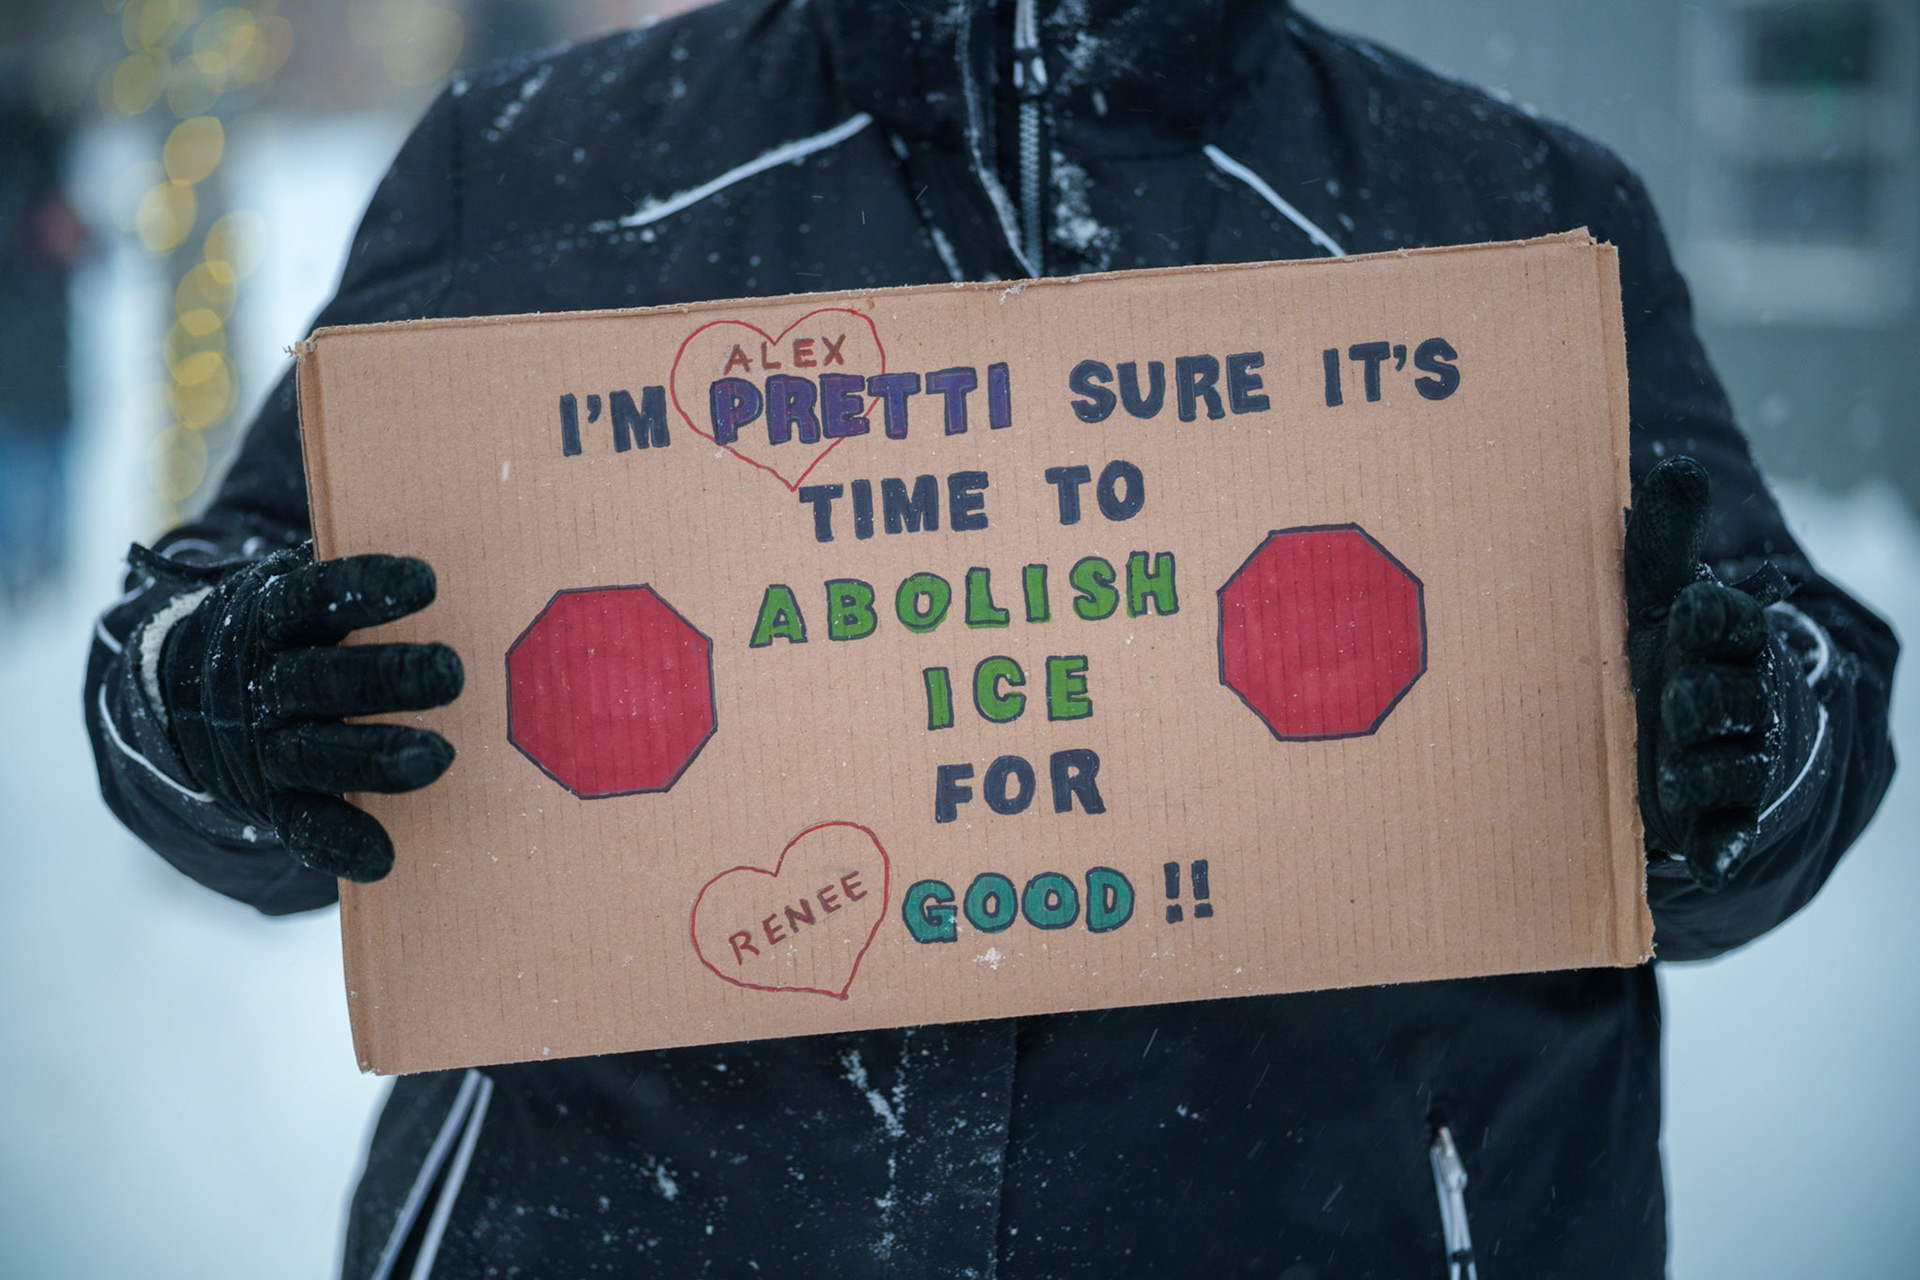 ALEX
I'M PRETTI SURE IT'S
TIME TO
ABOLISH
ICE
FOR
RENEE GOOD !!